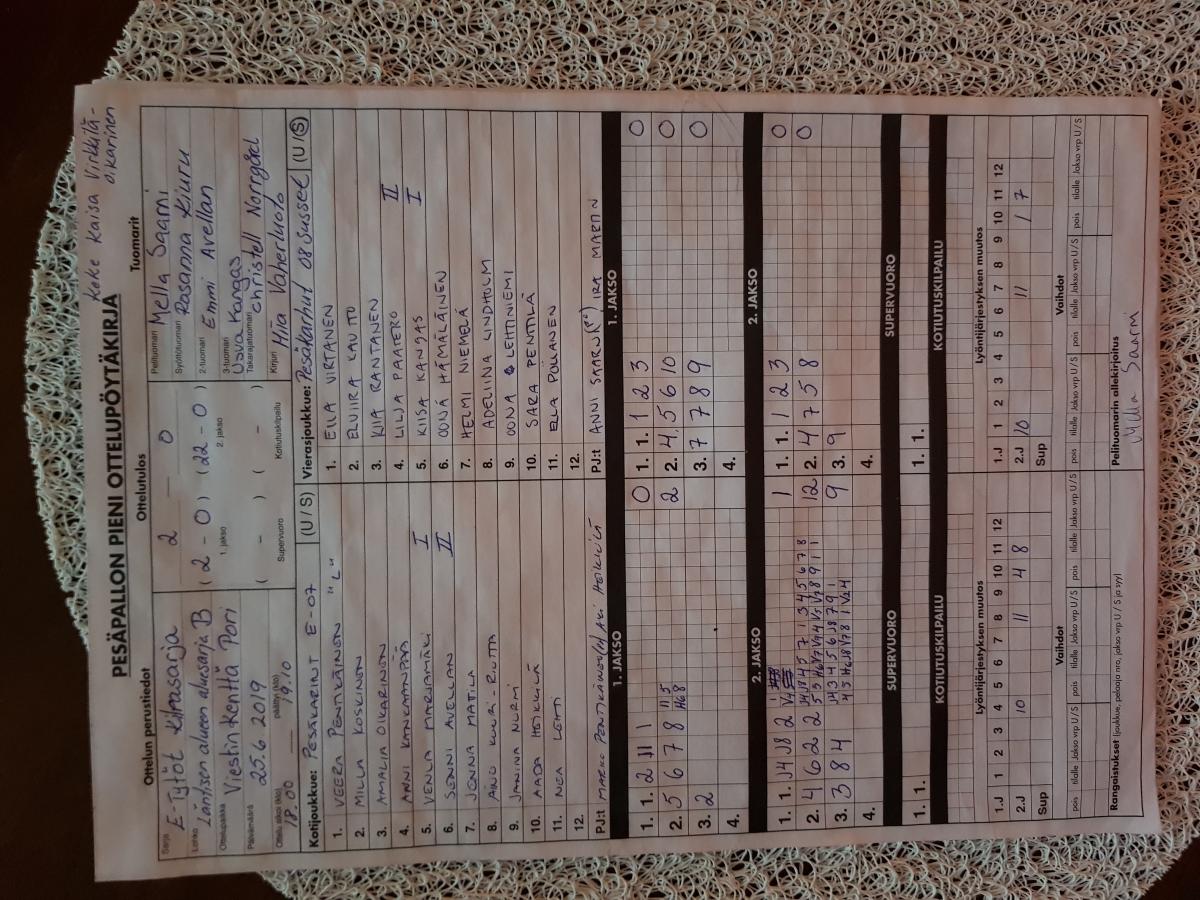 Koke Kaisa Virkkilä-
oikarinen
PESÄPALLON PIENI OTTELUPÖYTÄKIRJA
Ottelun perustiedot
Sarja E-Tytöt Kilpasarja
Lohko Läntisen alueen aluesarja B
Ottelupaikka Viestin kenttä Pori
Päivämäärä 25.6.2019
Ottelu alkoi (klo) 18.00 päättyi (klo) 19.10
Ottelutulos
2 — 0
( 2 - 0 ) ( 22 - 0 )
1. jakso 2. jakso
( - ) ( - )
Supervuoro Kotiutuskilpailu
Tuomarit
Pelituomari Mella Saarni
Syöttötuomari Rosanna Kiuru
2-tuomari Emmi Avellan
3-tuomari Usva Kangas
Takarajatuomari Christell Norrgård
Kirjuri Hila Vaherluoto
Kotijoukkue: PESÄKARHUT E-07 (U / S)
1. VEERA PENTIKÄINEN "L"
2. MILLA KOSKINEN
3. AMALIA OIKARINEN
4. ANNI KANKAANPÄÄ
5. VENLA MARJAMÄKI I
6. SENNI AVELLAN II
7. JENNA MATILA
8. AINO KUURI-RIUTTA
9. JANINA NURMI
10. AADA HEIKKILÄ
11. NEA LEHTI
12.
PJ:t MARKO PENTIKÄINEN AKI HEIKKILÄ
Vierasjoukkue: Pesäkarhut 08 Susset (U / S)
1. ELLA VIRTANEN
2. ELVIIRA KAUTTU
3. KIIA RANTANEN
4. LILJA PAATERO II
5. KIISA KANGAS I
6. OONA HÄMÄLÄINEN
7. HELMI NIEMELÄ
8. ADELIINA LINDHOLM
9. OONA LEHTINIEMI
10. SARA PENTTILÄ
11. ELLA PÖLLÄNEN
12.
PJ:t ANNI SAARNI IRA MARTIN
1. JAKSO 1. JAKSO
1. 1. 2 11 1 0
2. 5 6 7 8 2
3. 2
4.
1. 1. 1 2 3 0
2. 4 5 6 10 0
3. 7 7 8 9 0
4.
2. JAKSO 2. JAKSO
1. 1. J4 J8 2 1
2. 4 6 2 2 12
3. 3 8 4 9
4.
1. 1. 1 2 3 0
2. 4 7 5 8 0
3. 9
4.
SUPERVUORO SUPERVUORO
1. 1. 1. 1.
KOTIUTUSKILPAILU KOTIUTUSKILPAILU
Lyöntijärjestyksen muutos
1.J 1 2 3 4 5 6 7 8 9 10 11 12
2.J 10 11 4 8
Sup
Lyöntijärjestyksen muutos
1.J 1 2 3 4 5 6 7 8 9 10 11 12
2.J 10 11 1 7
Sup
Vaihdot Vaihdot
pois tilalle Jakso vrp U / S pois tilalle Jakso vrp U / S pois tilalle Jakso vrp U / S pois tilalle Jakso vrp U / S pois tilalle Jakso vrp U / S pois tilalle Jakso vrp U / S
Rangaistukset (joukkue, pelaaja nro, jakso vrp, U / S ja syy)
Pelituomarin allekirjoitus
Mella Saarni